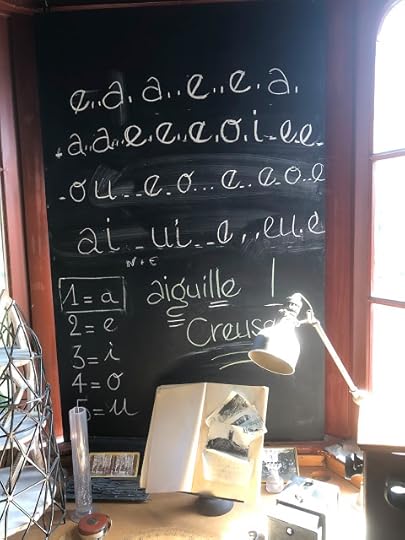 e..a..a..e..e.a.
.a..a...e.e..e.oi.e..e.
.ou..e.o...e..e.o..e
ai.ui..e..eu.e
1 = a
2 = e
3 = i
4 = o
5 = u
aiguille !